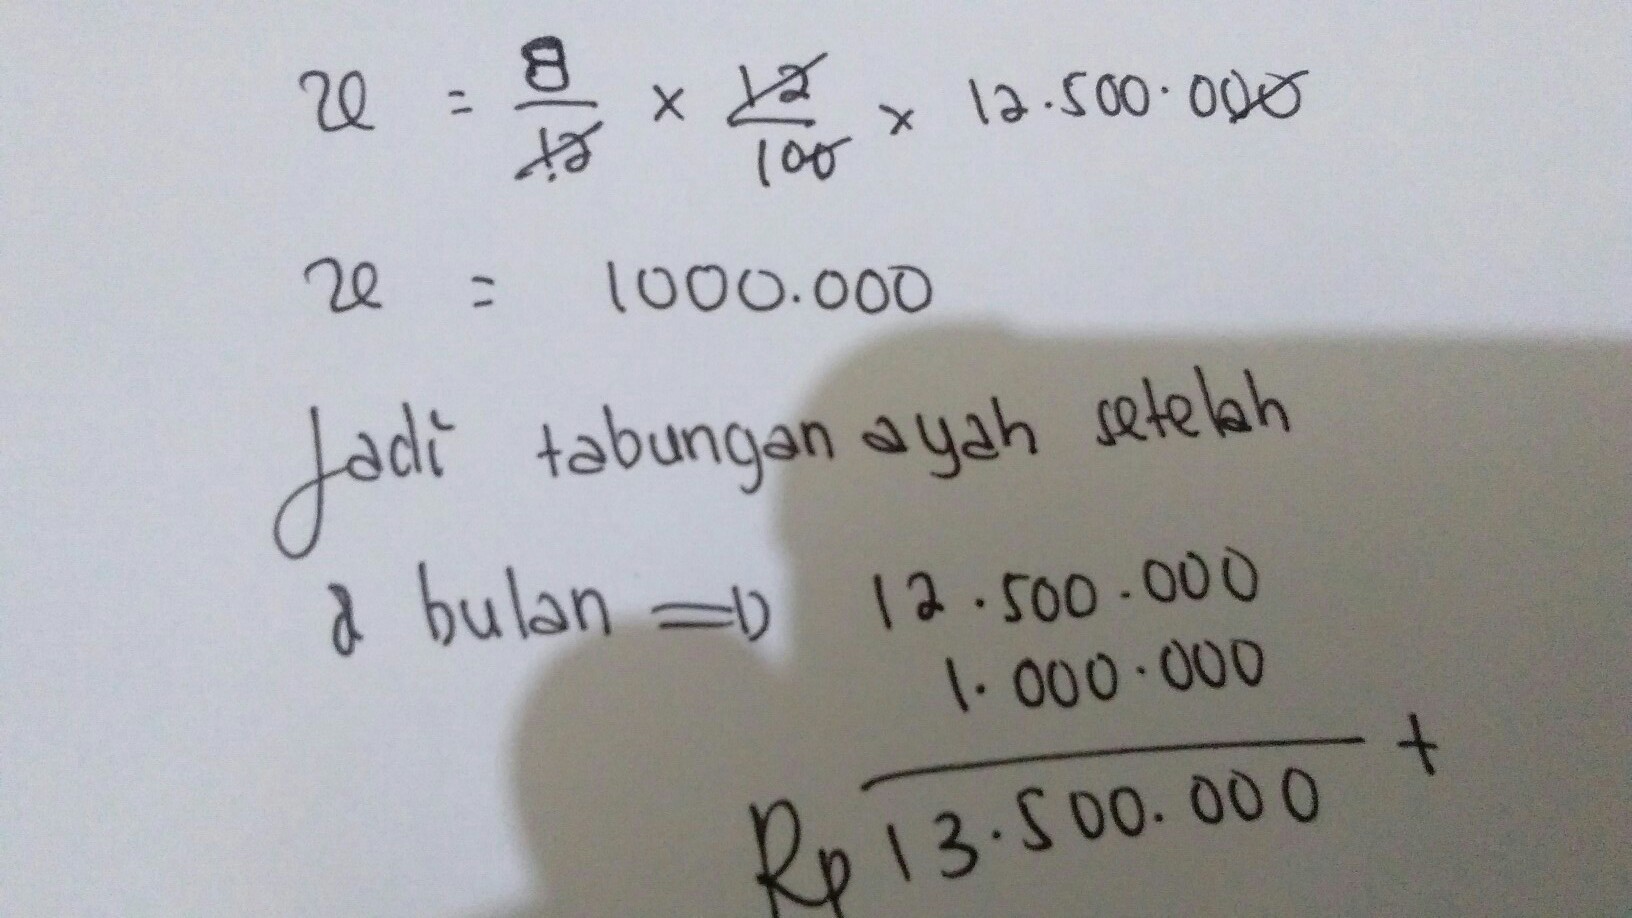 x = 8/12 x 12/100 x 12.500.000
x = 1000.000
Jadi tabungan ayah setelah
2 bulan => 12.500.000
1.000.000
+
Rp 13.500.000